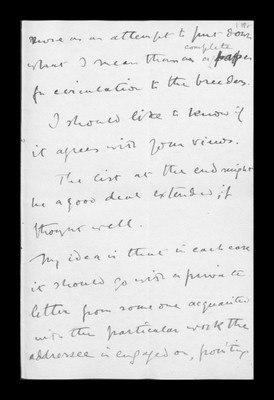 more as an attempt to put down
what I mean than as a complete paper
for circulation to the breeders.
I should like to know if
it agrees with your views.
The list at the end might
be a good deal extended, if
thought well.
My idea is that in each case
it should go with a private
letter from some one acquainted
with the particular work the
addressee is engaged on, pointing